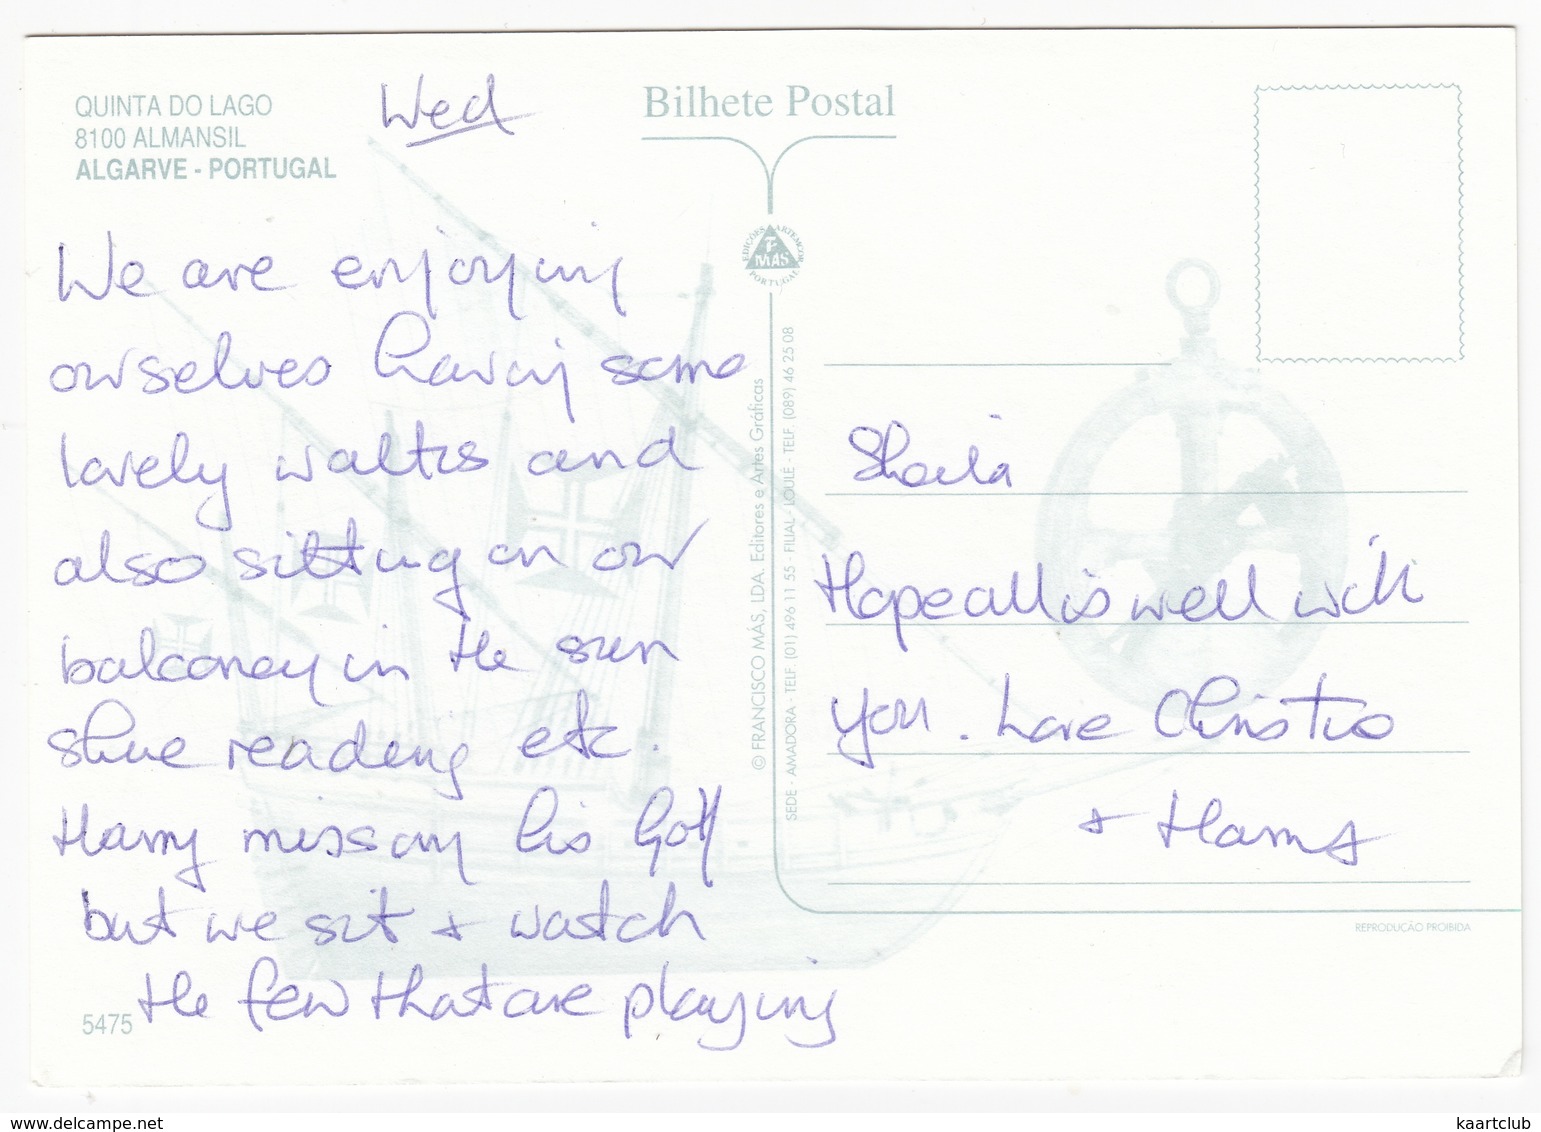 QUINTA DO LAGO
8100 ALMANSIL
ALGARVE - PORTUGAL
Wed
We are enjoying
ourselves having some
lovely walks and
also sitting on our
balconey in the sun
shine reading etc.
Harry missing his Golf
but we sit + watch
the few that are playing
5475
Bilhete Postal
EDIÇÕES ARTE MODERNA
F
MÁS
PORTUGAL
© FRANCISCO MÁS, LDA. Editores e Artes Gráficas
SEDE - AMADORA - TELF. (01) 496 11 55 - FILIAL - LOULÉ - TELF. (089) 46 25 08
Sheila
Hope all is well with
you. Love Christie
+ Harry
REPRODUÇÃO PROIBIDA
www.delcampe.net
kaartclub